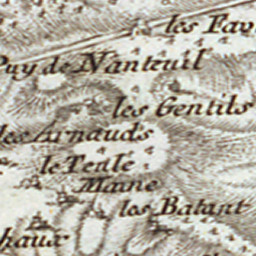 les Fav
Puy de Nanteuil
les Gentils
les Arnauds
le Teule
Maine
les Batant
haux